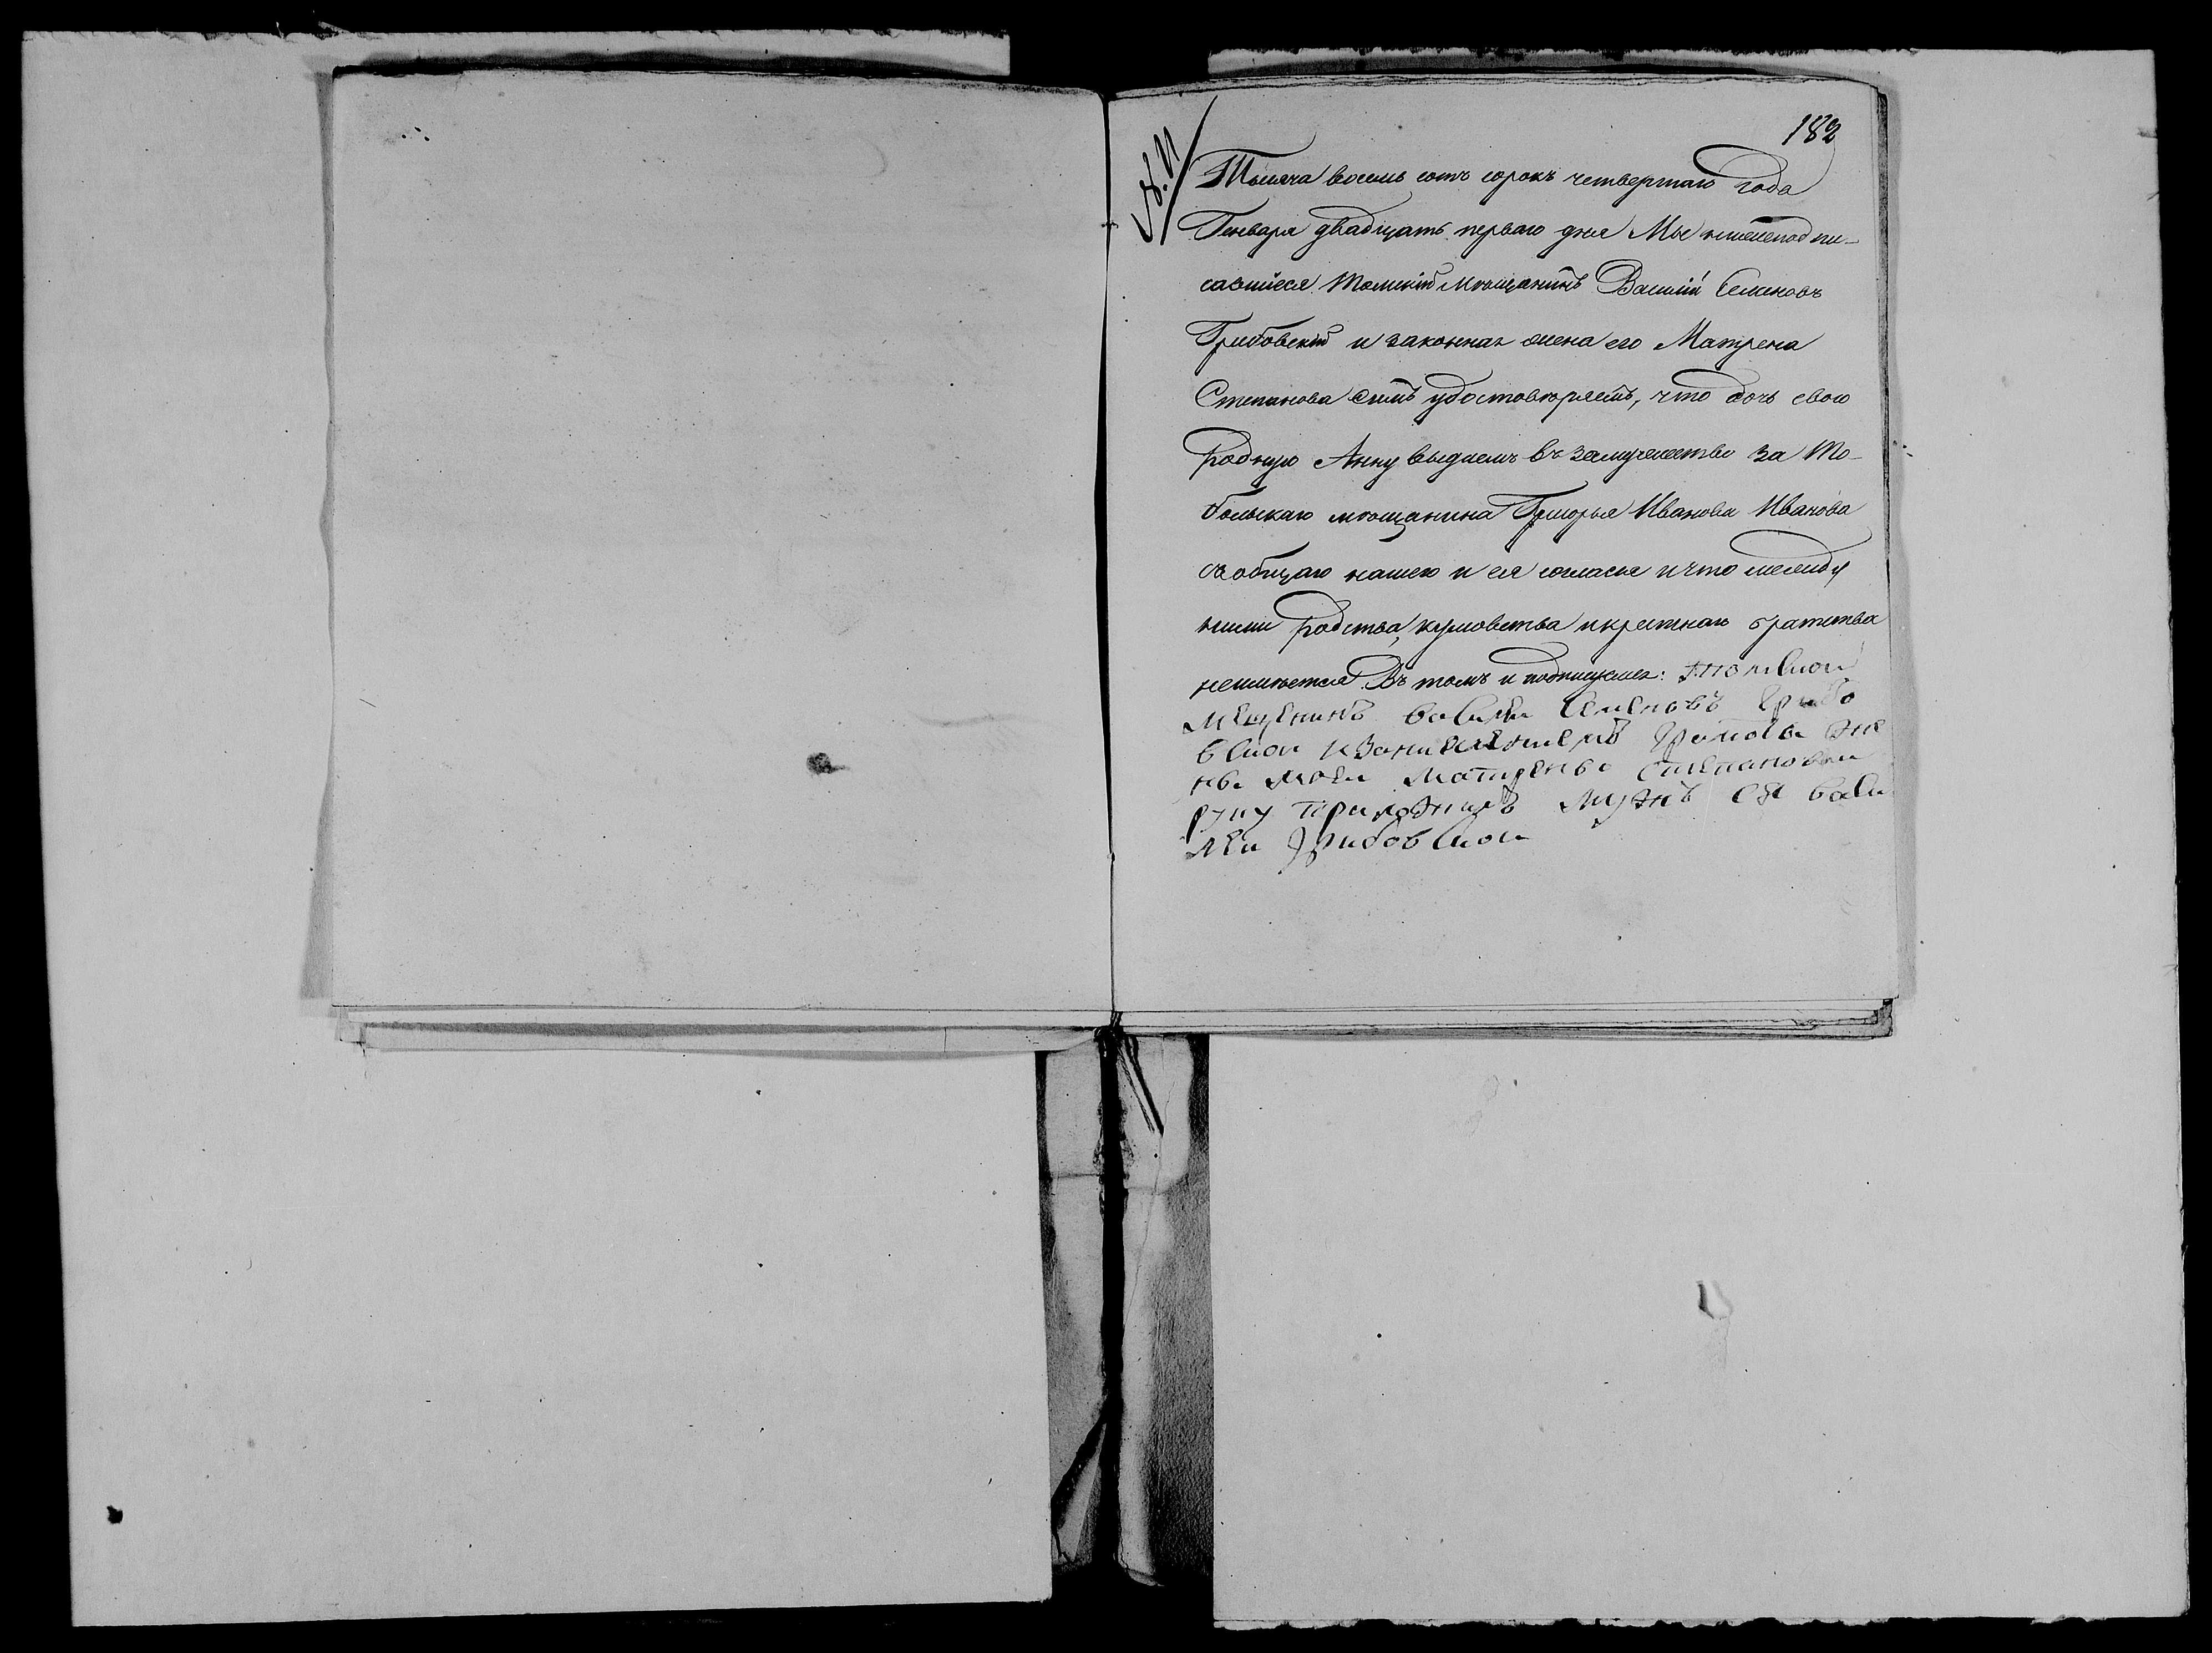 182
Тысяча восемь сотъ сорокъ четвертаго года
Генваря двадцать перваго дня Мы нижеподпи-
савшiеся Томскiй мѣщанинъ Василiй Семеновъ
Грибовскiй и законная жена его Матрена
Степанова симъ удостовѣряемъ, что дочь свою
родную Анну выдаемъ въ замужество за То-
больскаго мѣщанина Григорья Иванова Иванова
съ общаго нашего и ея согласья и что между
ними родства, кумовства и крестнаго братства
неимѣется Въ томъ и подпишемся: томскои
мещенинъ василеи Семеновъ Грибо
вскои грамоты же
ны моеи матрены степановои
руку приложилъ мужъ ея васи
леи Грибовскои